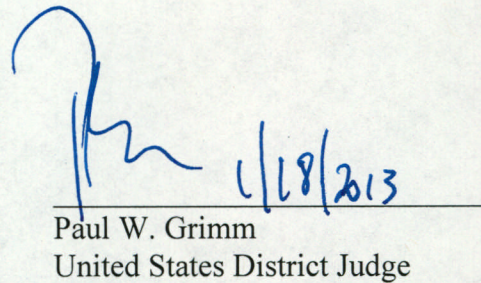 1/18/2013
Paul W. Grimm
United States District Judge